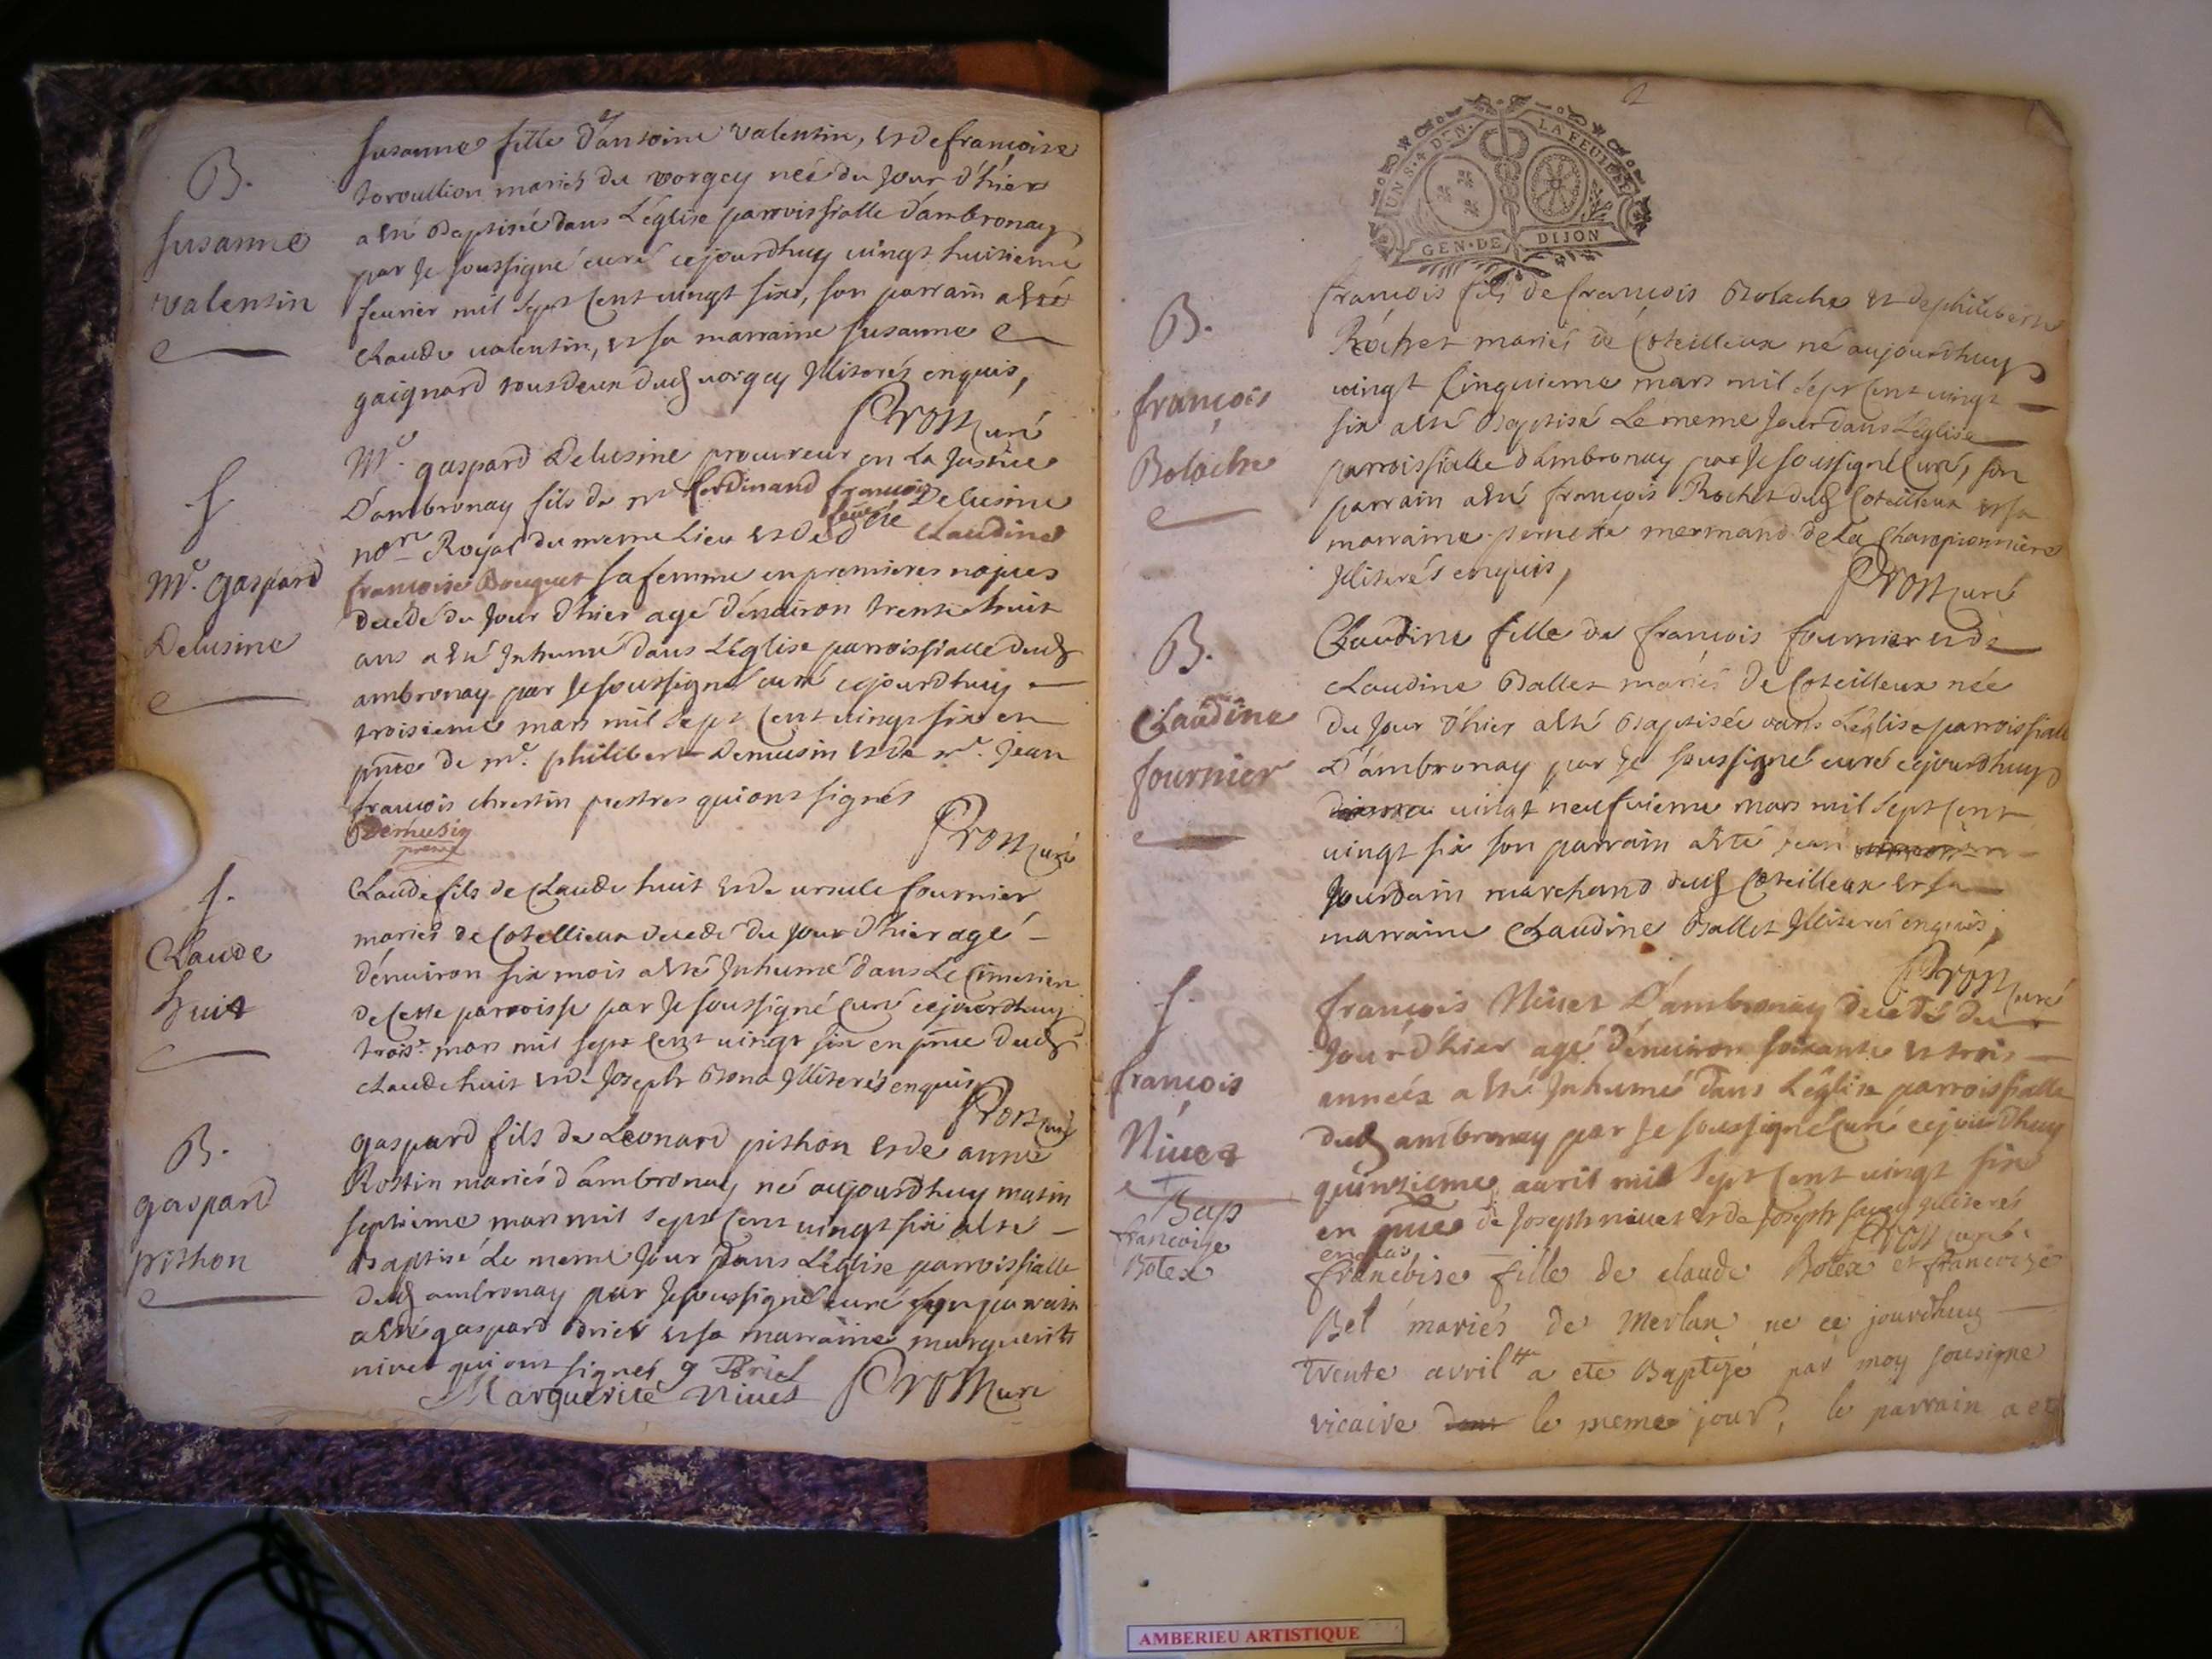 B.
Susanne
valentin
Susanne fille d'antoine valentin, et de françoise
mariés du vorgey née du jour d'hier
a esté Baptisée dans L'église parroissialle d'ambronay
par Je soussigné curé cejourdhuy vingt huitieme
feurier mil sept cent vingt six, son parrain a esté
Claude valentin, et sa marraine susanne
gaignard tous deux dud vorgey Illiterés enquis,
curé
f
Mr. gaspard
Delusine
Mr. gaspard Delusine procureur en La Justice
D'ambronay fils de mr ferdinand françois Delusine
nore Royal du meme Lieu et de dlle Claudine
françoise Bouquet sa femme en premieres nopces
decedé du Jour d'hier agé d'enuiron trente huit
ans a esté Inhumé dans L'église parroissialle dud
ambronay par Je soussigné curé cejourdhuy
troisieme mars mil sept cent vingt six en
pnce de mr. philibert Demusin et de mr. Jean
françois chrestin prestres qui ont signés
Demusin
prestre
curé
f.
Claude
huit
Claude fils de Claude huit et de ursule fournier
mariés de Cotellieux decedé du Jour d'hier agé
d'enuiron six mois a esté Inhumé dans Le Cimetiere
de Cette parroisse par Je soussigné Curé cejourdhuy
trois.e mars mil sept cent vingt six en pnce dud
Claude huit et de Joseph Bona Illiterés enquis
curé
B.
gaspard
pithon
gaspard fils de Leonard pithon et de anne
Rostin mariés d'ambronay né aujourdhuy matin
septieme mars mil sept cent vingt six a esté
Baptisé Le meme Jour dans L'église parroissialle
dud ambronay par Je soussigné curé son parrain
a esté gaspard Briel et sa marraine marguerite
niuet qui ont signés g Briel
Marguerite Niuet curé
2
UN S. 4 DEN. LA FEUILLE
GEN. DE DIJON
B.
françois
Bolache
françois fils de françois Bolache et de philiberte
Rochet mariés de Coteilleux né aujourdhuy
vingt Cinquieme mars mil sept cent vingt
six a esté Baptisé Le meme Jour dans L'église
parroissialle d'ambronay par Je soussigné Curé, son
parrain a esté françois Rochet dud Coteilleux et sa
marraine pernette mermand de La Championniere
Illiterés enquis,
curé
B.
Claudine
fournier
Claudine fille de françois fournier et de
Claudine Ballet mariés de Coteilleux née
du Jour d'hier a esté Baptisée dans L'église parroissialle
D'ambronay par Je soussigné curé cejourdhuy
vingt neufuieme mars mil sept cent
vingt six son parrain a esté Jean
Jourdain marchand dud Coteilleux et sa
marraine Claudine Ballet Illiterés enquis,
curé
f.
françois
Niuet
françois Niuet D'ambronay decedé du
Jour d'hier agé d'enuiron soixante et trois
années a esté Inhumé dans L'église parroissialle
dud ambronay par Je soussigné Curé cejourdhuy
quinzieme auril mil sept cent vingt six
en pnce de Joseph niuet et de Joseph Illiterés
enquis
curé
Bap
francoise
Botex
francoise fille de claude Botex et francoize
Bel mariés de Merlan ne ce jourdhuy
trente avril a ete Baptizé par moy sousigne
vicaire dans le meme jour, le parrain a ete
AMBERIEU ARTISTIQUE